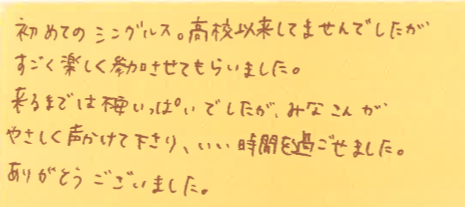 初めてのシングルス。高校以来してませんでしたが
すごく楽しく参加させてもらいました。
来るまでは いっぱいでしたが、みなさんが
やさしく声かけて下さり、いい時間を過ごせました。
ありがとうございました。